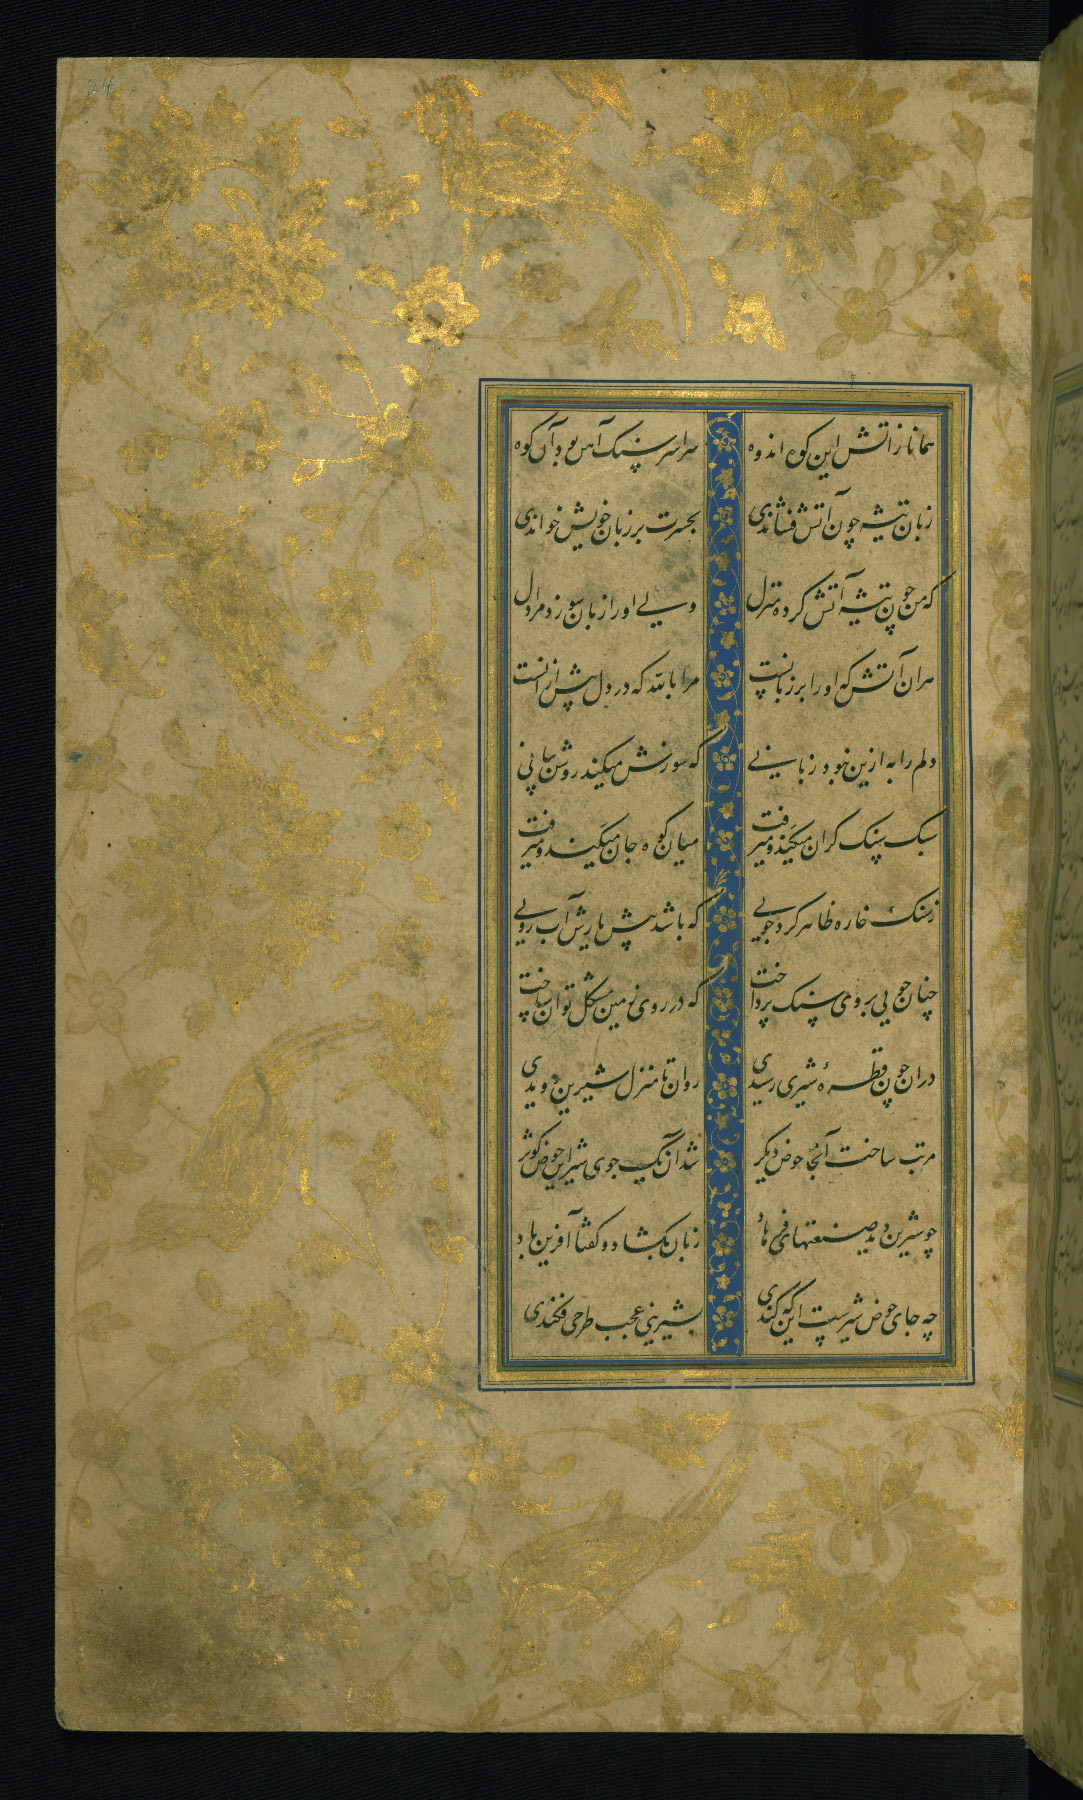 24
همانا ز آتش این کوه اندوه سراسر سنک آهن بود آن کوه
زبان تیشه چون آتش فشاندی بحسرت بر زبان خویش خواندی
که من چون تیشه آتش کرده منزل ولی او را زبان سوزد مرا دل
هران آتش که او را بر زبانست مرا بالله که در دل پیش ازانست
دلم را به ازین خود زبانی که سوزش میکند روشن بیانی
سبک سنک کران میکند و میرفت میان کوه جان میکند و میرفت
ز سنک خاره ظاهر کرد جویی که باشد پیش یارش آب رویی
چنان جویی بروی سنک پرداخت که در روی زمین مشکل توان ساخت
دران جون قطرهٔ شیری رسیدی روان تا منزل شیرین دویدی
مرتب ساخت آنجا حوض دیکر شد آن یک جوی شیر این حوض کوثر
چو شیرین دید صنعتهای فرهاد زبان بکشاد و کفتا آفرین باد
چه جای حوض شیرست این که کندی بشیرینی عجب طرحی فکندی